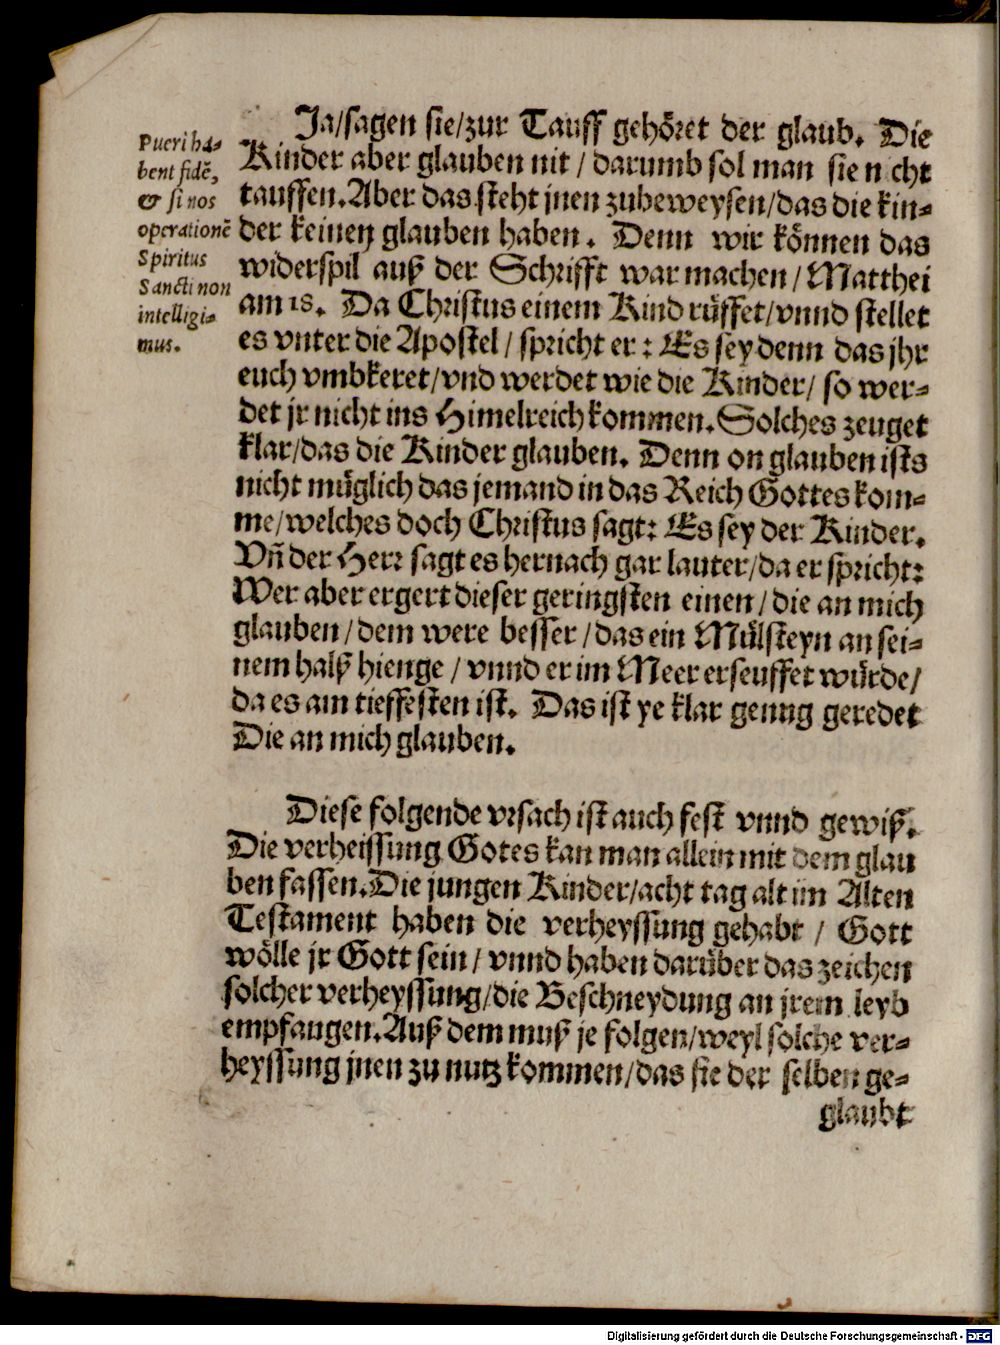 Pueri ha-
bent fidē,
& si nos
operationē
Spiritus
Sancti non
intelligi-
mus.
Ja/sagen sie/zur Tauff gehöret der glaub. Die
Kinder aber glauben nit / darumb sol man sie n cht
tauffen. Aber das steht jnen zubeweysen/das die kin-
der keinen glauben haben. Denn wir können das
widerspil auß der Schrifft war machen / Matthei
am 18. Da Christus einem Kind rüffet/vnnd stellet
es vnter die Apostel / spricht er: Es sey denn das jhr
euch vmbkeret/vnd werdet wie die Kinder/ so wer-
det jr nicht ins Himelreich kommen. Solches zeuget
klar/das die Kinder glauben. Denn on glauben ists
nicht müglich das jemand in das Reich Gottes kom-
me/welches doch Christus sagt: Es sey der Kinder.
Vñ der Herr sagt es hernach gar lauter/da er spricht:
Wer aber ergert dieser geringsten einen / die an mich
glauben / dem were besser / das ein Mülsteyn an sei-
nem halß hienge / vnnd er im Meer erseuffet würde/
da es am tieffesten ist. Das ist ye klar genug geredet
Die an mich glauben.
Diese folgende vrsach ist auch fest vnnd gewiß.
Die verheissung Gotes kan man allein mit dem glau
ben fassen. Die jungen Kinder/acht tag alt im Alten
Testament haben die verheyssung gehabt / Gott
wölle jr Gott sein / vnnd haben darüber das zeichen
solcher verheyssung/die Beschneydung an jrem leyb
empfangen. Auß dem muß je folgen/weyl solche ver-
heyssung jnen zu nutz kommen/das sie der selben ge-
glaubt
Digitalisierung gefördert durch die Deutsche Forschungsgemeinschaft - DFG